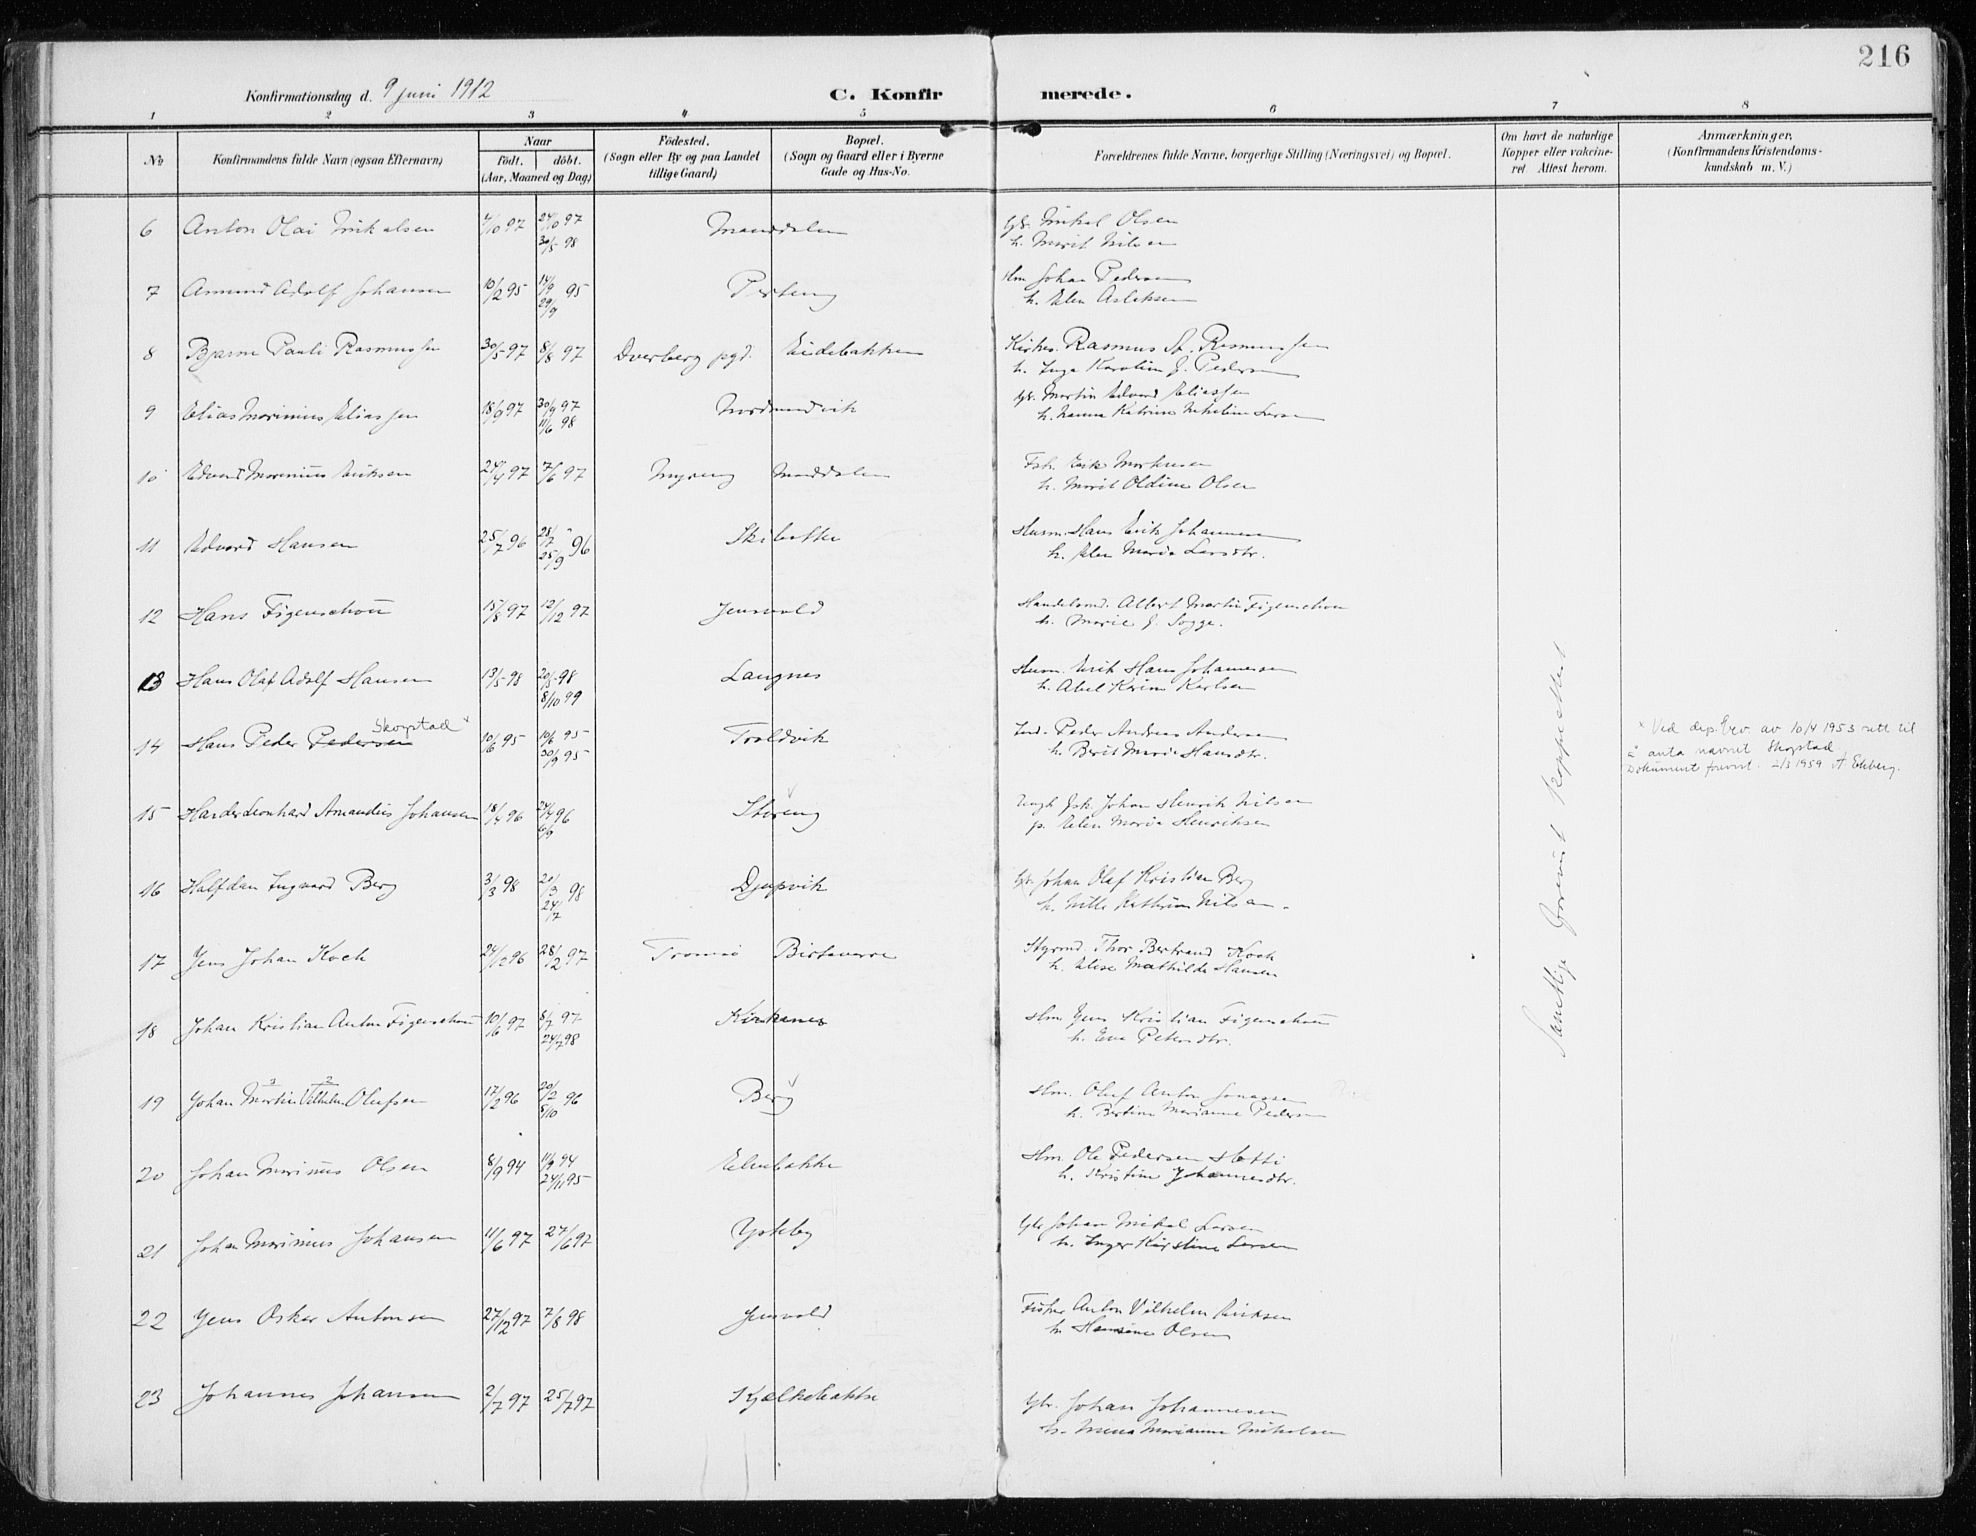 216
Konfirmationsdag d. 9 juni 1912
C. Konfirmerede.
1 2 3 4 5 6 7 8
No
Konfirmandens fulde Navn (ogsaa Efternavn)
Naar
født. døbt.
(Aar, Maaned og Dag)
Fødested.
(Sogn eller By og paa Landet
tillige Gaard)
Bopæl.
(Sogn og Gaard eller i Byerne
Gade og Hus-No.
Forældrenes fulde Navne, borgerlige Stilling (Næringsvei) og Bopæl.
Om havt de naturlige
Kopper eller vakcine-
ret. Attest herom.
Anmærkninger.
(Konfirmandens Kristendoms-
kundskab m. V.)
6 Anton Olai Mikalsen 4/10 97 24/10 97 Manddalen Gbr. Mikal Olsen
30/5 98 h. Marit Nilsen
7 Amund Adolf Johansen 10/2 95 14/9 95 Perteng Hm Johan Pedersen
29/9 h. Elen Aslaksen
8 Bjarne Pauli Rasmussen 30/5 97 8/8 97 Dverberg pgd. Eidebakken Kirkes. Rasmus Rasmussen
h. Inga Karolina J. Pedersen
9 Elias Marinius Eliassen 18/9 97 30/9 97 Nordmandvik Gbr. Martin Edvard Eliassen
11/6 98 h. Hanna Katrine Larsen
10 Edvard Marinius Eriksen 24/4 97 7/6 97 Myreng Manddalen Fisk. Erik Markusen
h. Marit Oldine Olsen
11 Edvard Hansen 25/7 96 28/7 96 Skibotten Husm. Hans Erik Johannesen
25/9 h. Elen Maria Larsdtr.
12 Hans Figenschou 15/8 97 12/12 97 Jensvold Handelsmd. Albert Martin Figenschou
h. Marie J. Sogge.
13 Hans Olaf Adolf Hansen 13/5 98 20/5 98 Langnes Husm Erik Hans Johannesen
8/10 99 h. Abel Karine Karlsen
Skogstad x
14 Hans Peder Pedersen 10/6 95 10/6 95 Troldvik Ind. Peder Andreas Andersen
30/9 95 h. Berit Marie Hansdtr.
x Ved dep. brv. av 10/4 1953 rett til
å anta navnet Skogstad.
Dokument forevist. 2/3 1959 A Ekberg.
15 Harder Leonhard Amandus Johansen 18/4 96 24/4 96 Storeng Ungk. Johan Henrik Nilsen
6/9 p. Elen Maria Henriksen
16 Halfdan Ingvard Berg 3/3 98 20/3 98 Djupvik Gbr. Johan Olaf Kristian Berg
24/7 h. Kathrine Nilsen.
17 Jens Johan Koch 24/10 96 28/2 97 Tromsø Birtavarre Styrmd. Thor Bertrand Koch
h. Elise Mathilde Hansen
18 Johan Kristian Anton Figenschou 10/6 97 8/7 97 Kirkenes Hm. Jens Kristian Figenschou
24/7 98 h. Eva Petersdtr.
3 2
19 Johan Martin Vilhelm Olufsen 17/2 96 20/2 96 Berg Hm. Oluf Anton Jonassen
8/10 h. Bertine Marianne Pedersen
20 Johan Marinius Olsen 8/9 94 11/9 94 Elvebakke Hm. Ole Pedersen Hetti
24/11 95 h. Kristine Johannesdtr.
21 Johan Marinius Johansen 11/6 97 27/6 97 Yttreby Gbr Johan Mikal Larsen
h. Inger Kirstine Larsen
22 Jens Oskar Antonsen 27/12 97 7/8 98 Jensvold Fisker Anton Vilhelm Eriksen
h. Hansine Olsen
23 Johannes Johansen 2/7 97 25/7 97 Kjelkebakke Gbr. Johan Johannesen
h. Marianne Nikolsen
Samtlige forevist Koppeattest